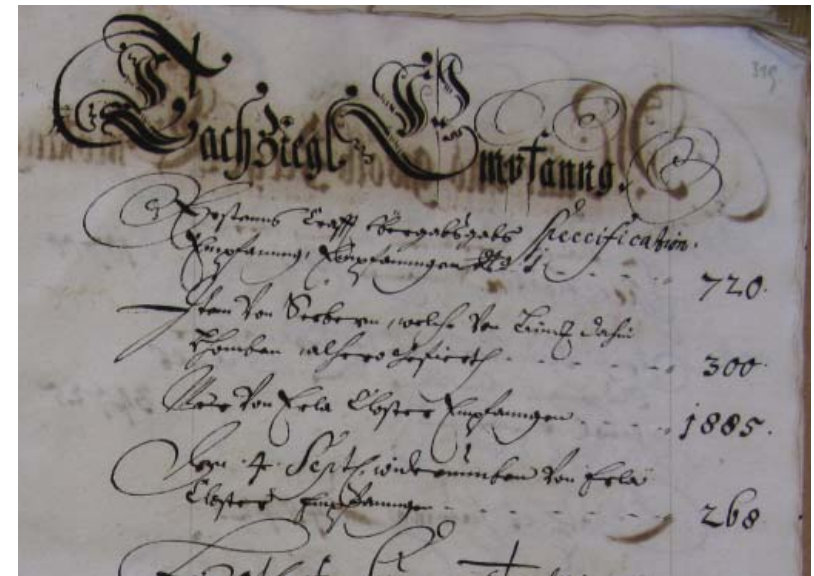 319
Tachziegl Empfanng.
Erstenns Crafft Übergabsgabs Speccification.
Empfanng, Empfanngen N: 1 720.
Item Von Seebern, welche Von dahin
khomben, alhero gefierth 300.
Mer Von Erla Closter Empfanngen 1885.
Den 4 Sept. widerumben Von Erla
Closter Empfanngen 268